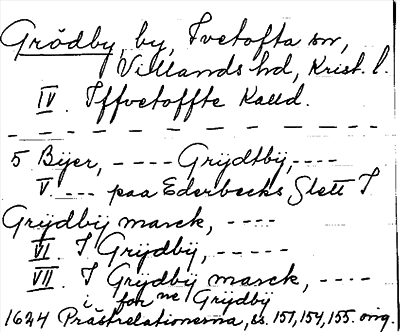 Grödby, by, Ivetofta sn,
Villands hd, Krist. l.
IV. Iffvetoffte Kalld.
5 Bijer, ---- Grijdtbij, ----
V. --- paa Ederbecks Slett I
Grijdbij marck, ----
VI. I Grijdbij, -----
VII. I Grijdbij marck, ----
i for ne Grijdbij
1624 Prästrelationerna, ss. 151, 154, 155. orig.